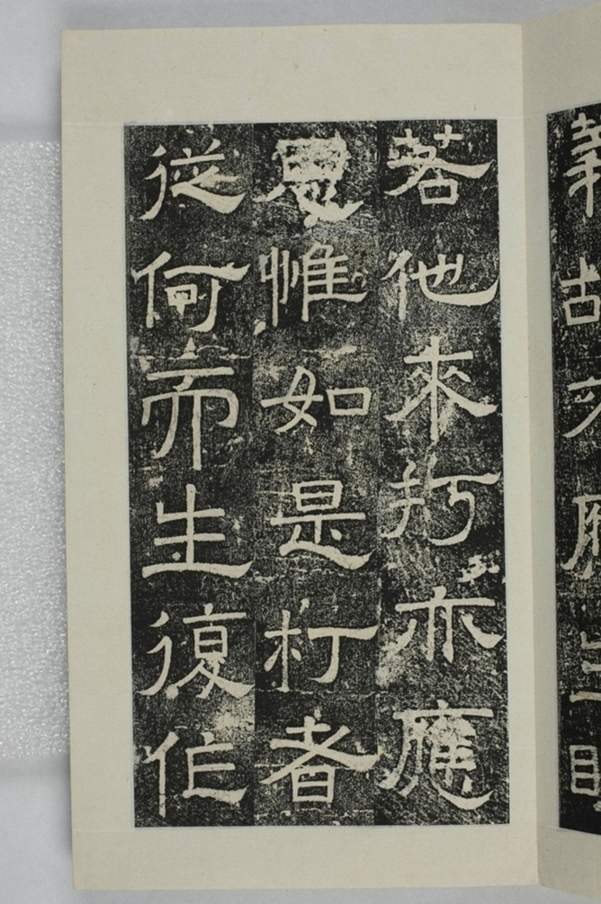 若他來打亦應
思惟如是打者
從何而生復作